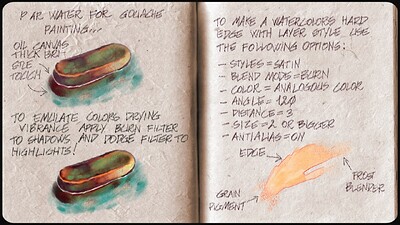 WATER FOR GOUACHE
PAINTING...
OIL CANVAS
THICK
SIZE
ROUGH
TO EMULATE COLORS DRYING
VIBRANCE APPLY BURN FILTER
TO SHADOWS AND DODGE FILTER TO
HIGHLIGHTS!
TO MAKE A WATERCOLORS HARD
EDGE WITH LAYER STYLE USE
THE FOLLOWING OPTIONS:
- STYLES = SATIN
- BLEND MODE = BURN
- COLOR = ANALOGOUS COLOR
- ANGLE = 120
- DISTANCE = 3
- SIZE = 2 OR BIGGER
- ANTIALIAS = ON
EDGE
GRAIN
PIGMENT
FROST
BLENDER